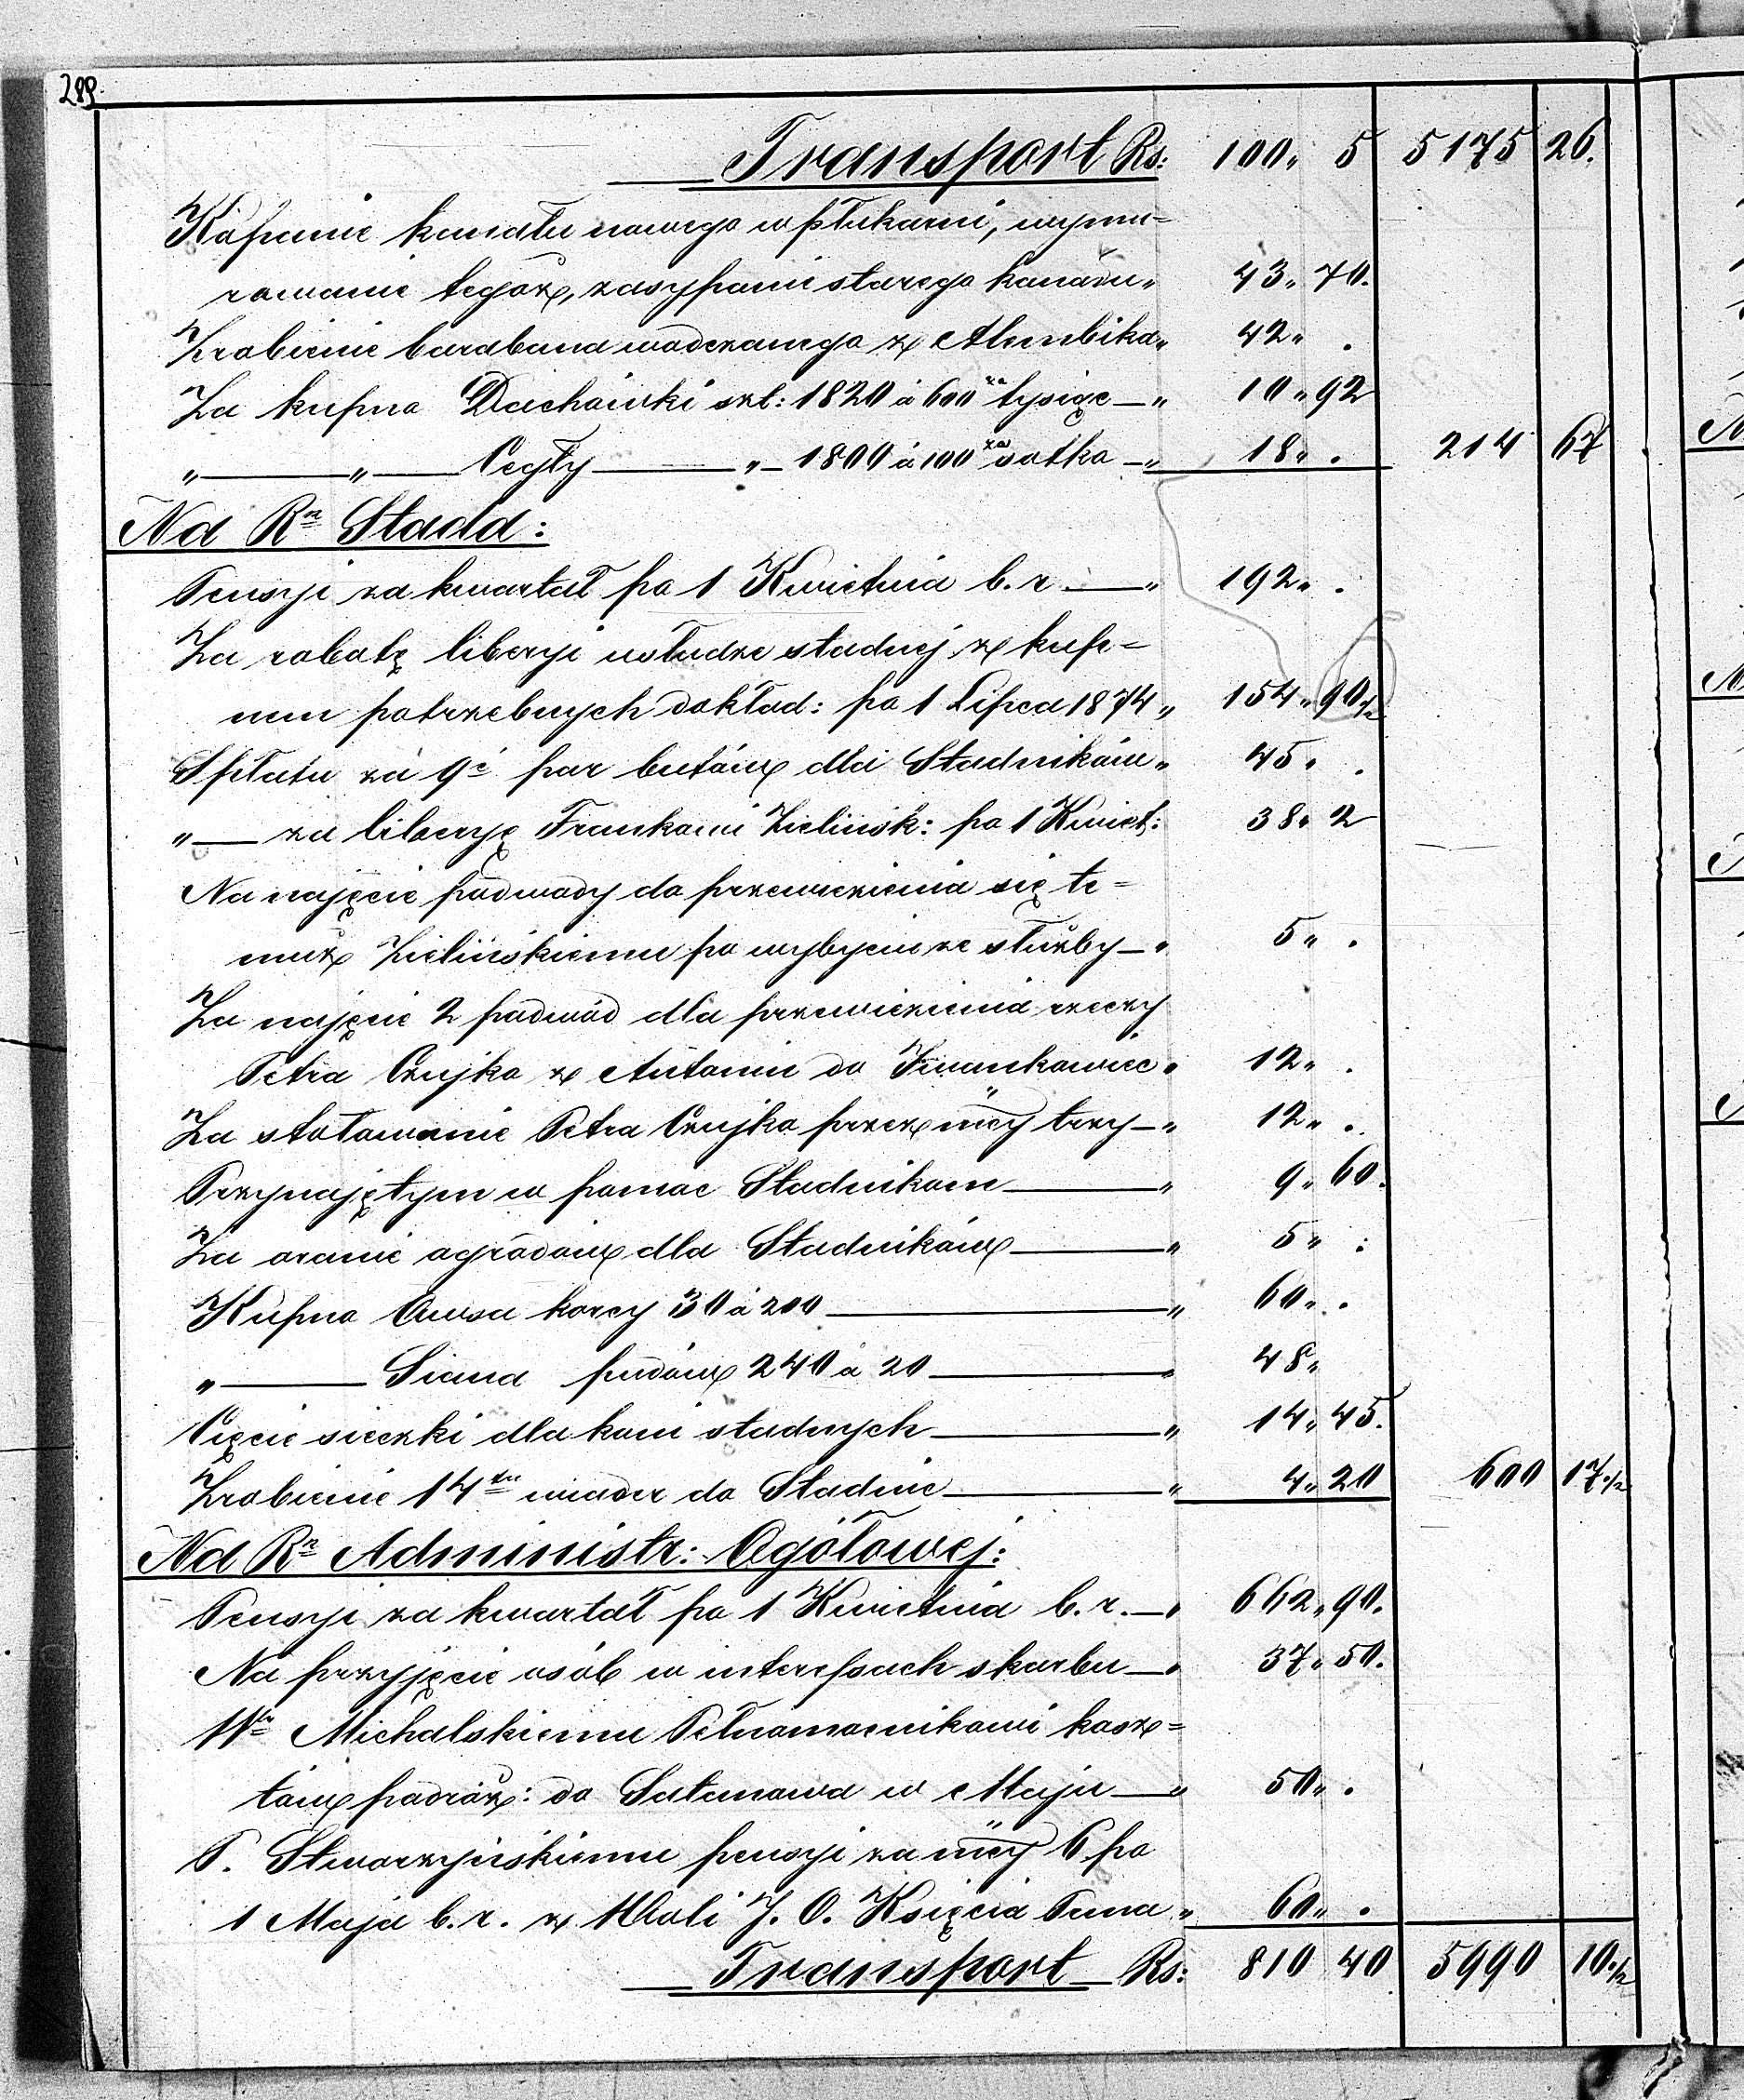 289.
Transport Rs: 100 „ 5 5175 26.
Kopanie kanału nowego w płukarni, wymu=
rowanie tegoż, zasypanie starego kanału „ 43 „ 70.
Zrobienie barabana wodczanego z Alembika „ 42 „ .
Za kupno Dachówki szt: 1820 à 600 za tysiąc — „ 10 „ 92
„ — „ — Cegły — „ — 1800 à 100 za sotka — „ 18 „ . 214 67
Na Rn Stada:
Pensyi za kwartał po 1 Kwietnia b. r. — „ 192 „ .
Za robotę liberyi usłudze stadnej z kup=
nem potrzebnych dokład: po 1 Lipca 1874 „ 154 „ 90½
Spłata za 9é par butów dla Stadników „ 45 „ .
„ — za liberyę Frankowi Zielińsk: po 1 Kwiet: 38 „ 2
Na najęcie podwody do przewiezienia się te=
muż Zielińskiemu po wybyciu ze służby — „ 5 „ .
Za najęcie 2 podwód dla przewiezienia rzeczy
Petra Czujko z Antonin do Iwankowiec „ 12 „ .
Za stołowanie Petra Czujko przez mcy trzy — „ 12 „ .
Przynajętym w pomoc Stadnikom — „ 9 „ 60.
Za oranie ogrodów dla Stadników — „ 5 „ .
Kupno Owsa korcy 30 à 200 — „ 60 „ .
„ — Siana pudów 240 à 20 — „ 48 „
Cięcie sieczki dla koni stadnych — „ 14 „ 45.
Zrobienie 14tu wiader do Stadnie — „ 4 „ 20 600 17½
Na Rn Administr: Ogółowej:
Pensyi za kwartał po 1 Kwietnia b. r. — „ 662 „ 90.
Na przyjęcie osób w interesach skarbu — „ 37 „ 50.
Michalskiemu Pełnomocnikowi kosz=
tów podróż: do Satanowa w Maju — „ 50 „ .
P. Stworzyńskiemu pensyi za mcy 6 po
1 Maja b. r. z Woli J. O. Księcia Pana „ 60 „ .
Transport Rs: 810 40 5990 10½